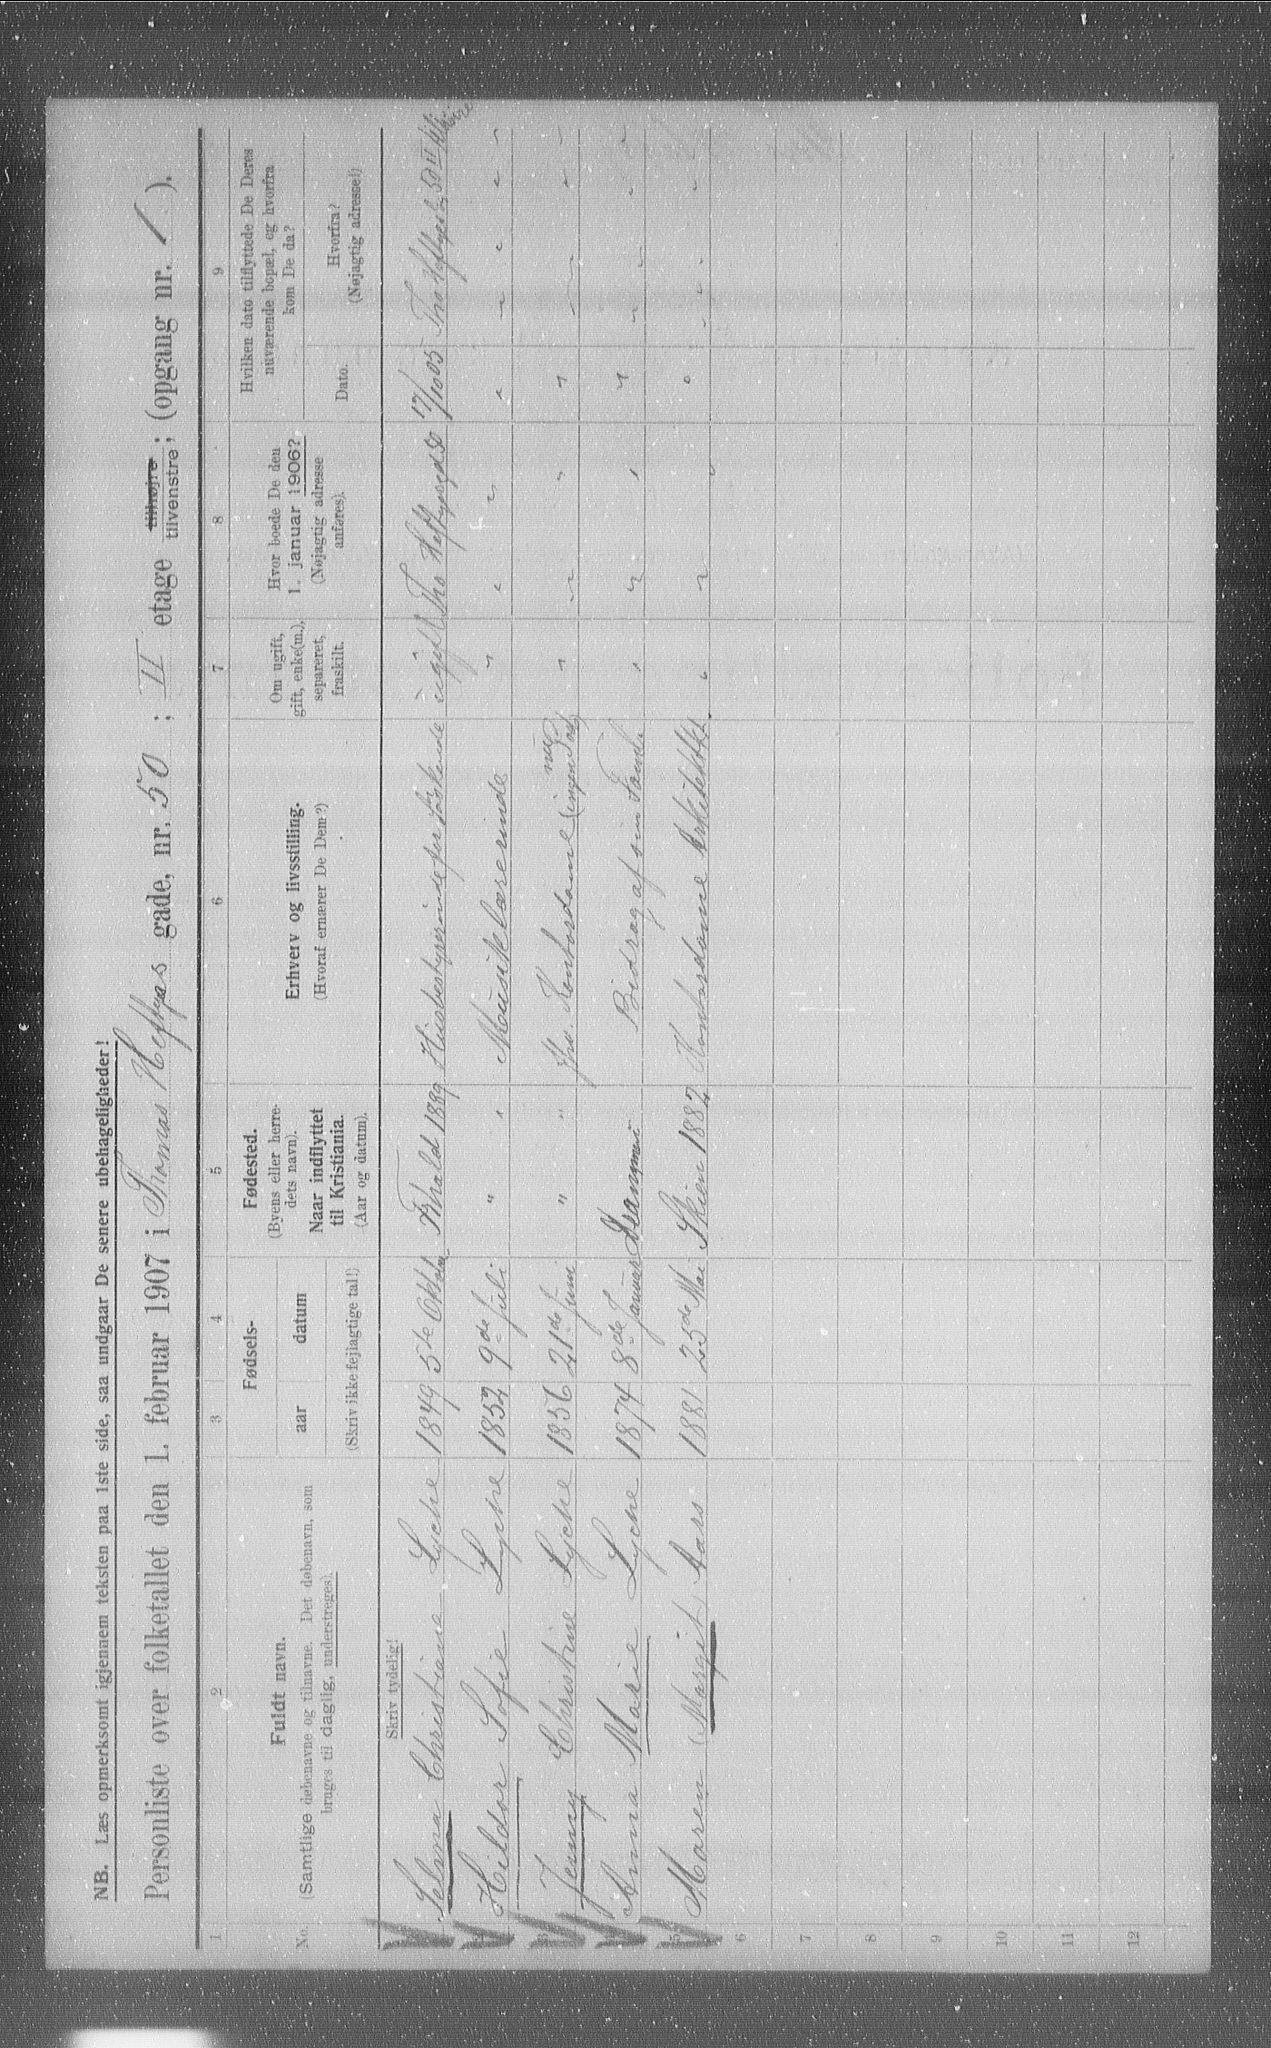 NB. Læs opmerksomt igjennem teksten paa 1ste side, saa undgaar De senere ubehageligheder!
Personliste over folketallet den 1. februar 1907 i Thomas Heftyes gade, nr. 50 ; II etage tilhøjre tilvenstre; (opgang nr. 1 ).
1 2 3 4 5 6 7 8 9
No.
Fuldt navn.
(Samtlige døbenavne og tilnavne. Det døbenavn, som
bruges til daglig, understreges).
Fødsels-
aar datum
(Skriv ikke fejlagtige tal!)
Fødested.
(Byens eller herre-
dets navn).
Naar indflyttet
til Kristiania.
(Aar og datum).
Erhverv og livsstilling.
(Hvoraf ernærer De Dem?)
Om ugift,
gift, enke(m.),
separeret,
fraskilt.
Hvor boede De den
1. januar 1906?
(Nøjagtig adresse
anføres).
Hvilken dato tilflyttede De Deres
nuværende bopæl, og hvorfra
kom De da?
Dato.
Hvorfra?
(Nøjagtig adresse!)
Skriv tydelig!
Selma Christiane Lyche 1849 5te Oktober Frhald 1889 Husbestyrerinde for Søskende ugift Tho Heftyesgd 50 17/10 05 Tho Heftyesg 50 II
Hildor Sofie Lyche 1852 9de Juli " " Musiklærerinde " " "
Jenny Christine Lyche 1856 21de Juni " " Kontordame (ingen Post) nu " " "
Anna Marie Lyche 1874 8de Januar Drammen Bidrag af sin Famili " " "
Maren Margit Aars 1881 25de Mai Skien 1882 Kontordame Arkitektkt. " " "
6
7
8
9
10
11
12